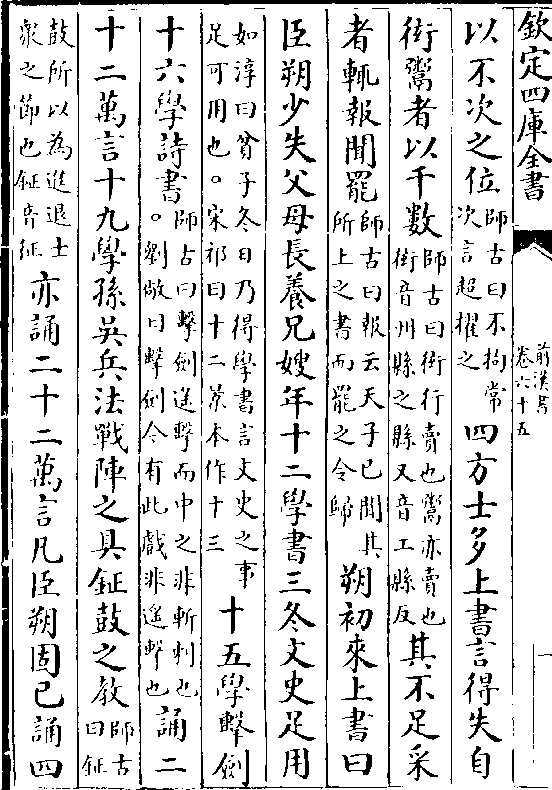 欽定四庫全書
前漢書
卷六十五
一
以不次之位師古曰不拘常次言超擢之四方士多上書言得失自
衒鬻者以千數師古曰衒行賣也鬻亦賣也衒音州縣之縣又音工縣反其不足采
者輒報聞罷師古曰報云天子已聞其所上之書而罷之令歸朔初來上書曰
臣朔少失父母長養兄嫂年十二學書三冬文史足用
如淳曰貧子冬日乃得學書言文史之事足可用也。宋祁曰十二景本作十三十五學擊劍
十六學詩書師古曰擊劍遥擊而中之非斬刺也。劉敞曰擊劍今有此戲非遥擊也誦二
十二萬言十九學孫吳兵法戰陣之具鉦鼓之教師古曰鉦
鼓所以為進退士衆之節也鉦音征亦誦二十二萬言凡臣朔固已誦四